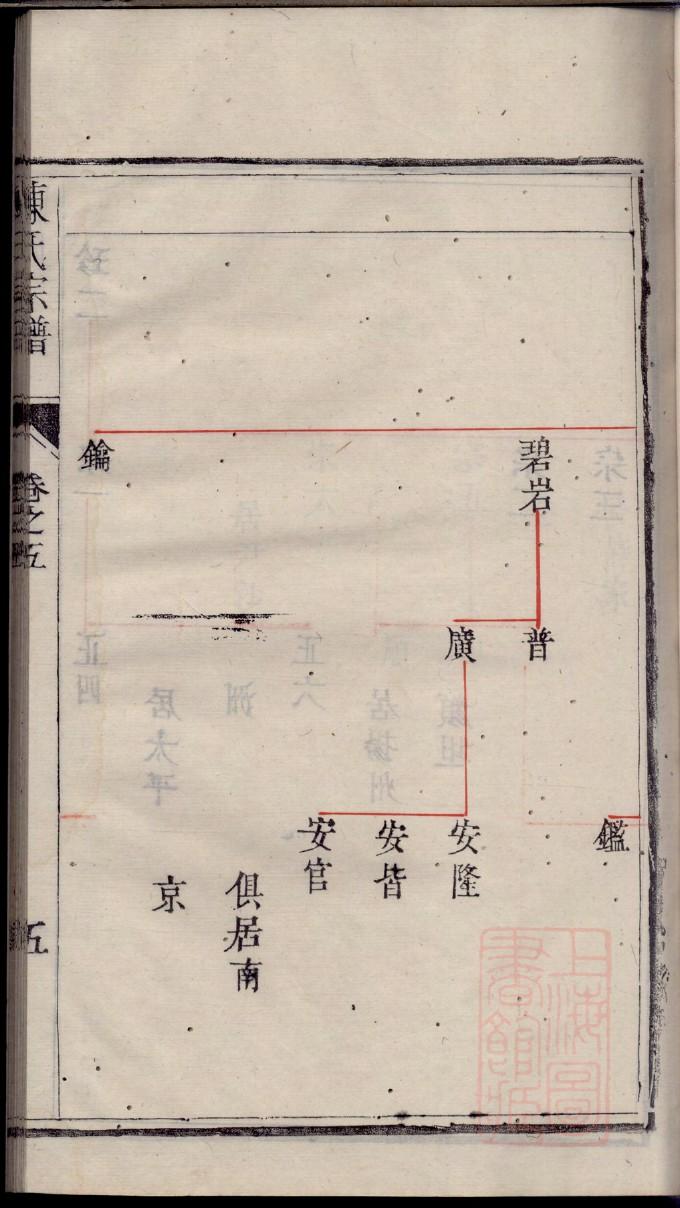 鑑
碧岩
普
廣
安隆
安皆
安官
俱居南
京
鑰
陳氏宗譜
卷之五
五
上海圖書館藏